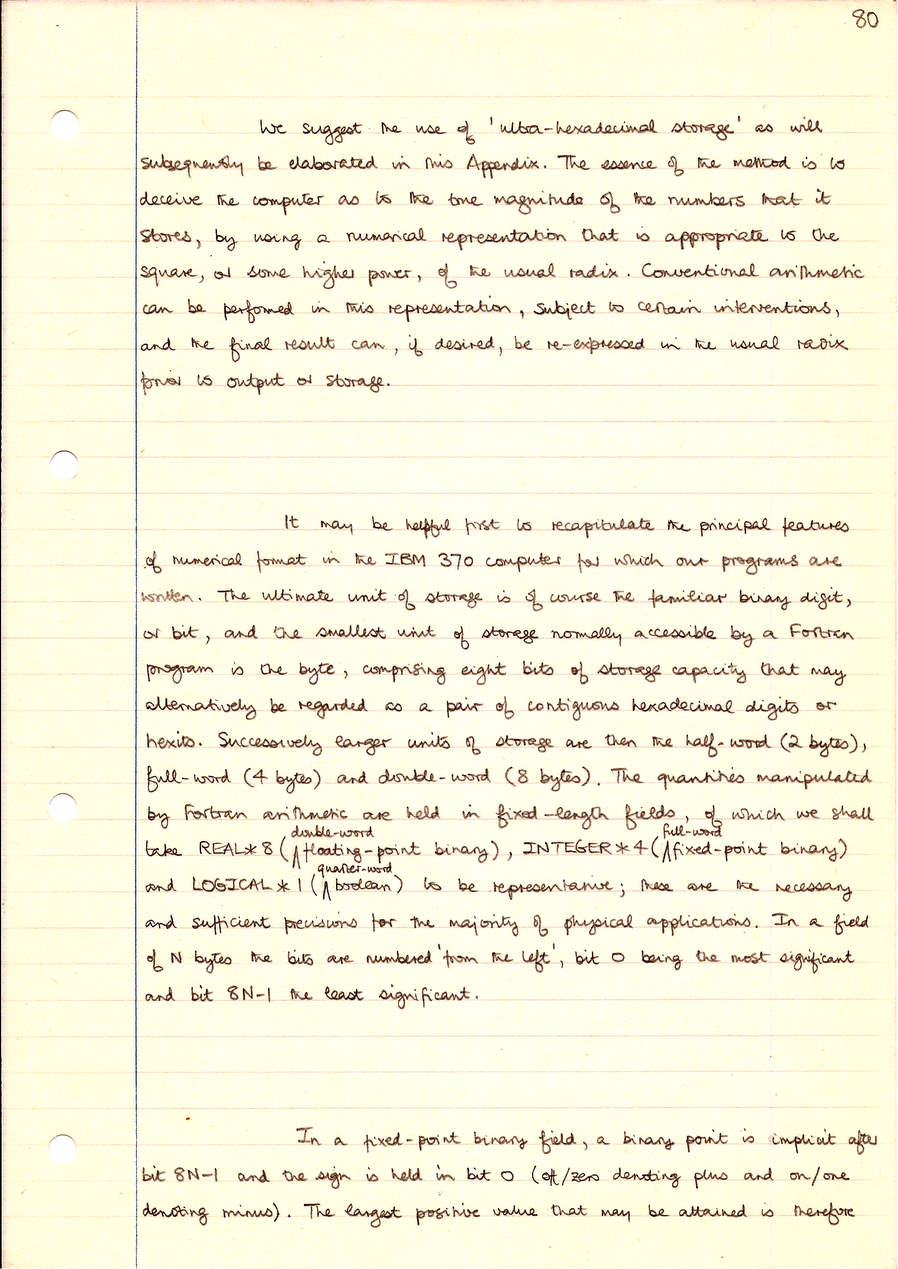 80
We suggest the use of 'ultra-hexadecimal storage' as will
subsequently be elaborated in this Appendix. The essence of the method is to
deceive the computer as to the true magnitude of the numbers that it
stores, by using a numerical representation that is appropriate to the
square, or some higher power, of the usual radix. Conventional arithmetic
can be performed in this representation, subject to certain interventions,
and the final result can, if desired, be re-expressed in the usual radix
prior to output or storage.
It may be helpful first to recapitulate the principal features
of numerical format in the IBM 370 computer for which our programs are
written. The ultimate unit of storage is of course the familiar binary digit,
or bit, and the smallest unit of storage normally accessible by a Fortran
program is the byte, comprising eight bits of storage capacity that may
alternatively be regarded as a pair of contiguous hexadecimal digits or
hexits. Successively larger units of storage are then the half-word (2 bytes),
full-word (4 bytes) and double-word (8 bytes). The quantities manipulated
by Fortran arithmetic are held in fixed-length fields, of which we shall
double-word full-word
take REAL*8 (floating-point binary), INTEGER*4 (fixed-point binary)
quarter-word
and LOGICAL*1 (boolean) to be representative; these are the necessary
and sufficient precisions for the majority of physical applications. In a field
of N bytes the bits are numbered 'from the left', bit 0 being the most significant
and bit 8N-1 the least significant.
In a fixed-point binary field, a binary point is implicit after
bit 8N-1 and the sign is held in bit 0 (off/zero denoting plus and on/one
denoting minus). The largest positive value that may be attained is therefore